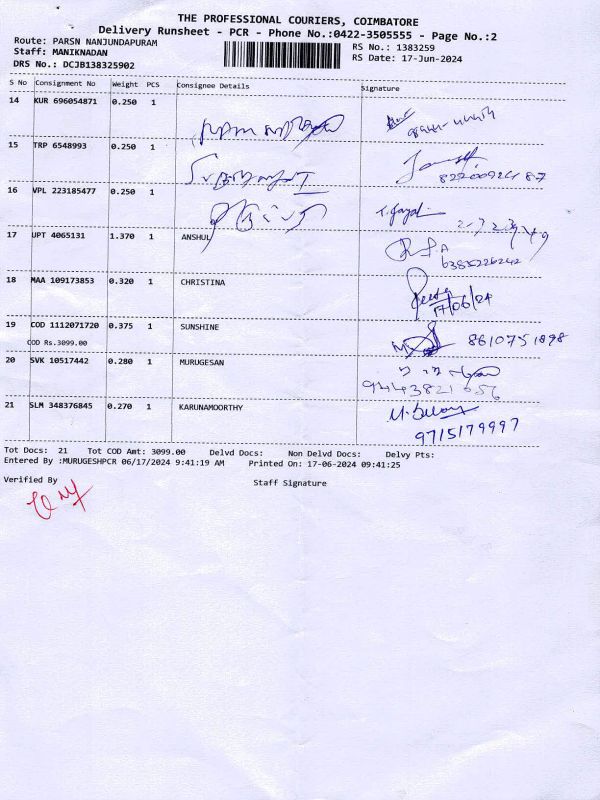 THE PROFESSIONAL COURIERS, COIMBATORE
Delivery Runsheet - PCR - Phone No.:0422-3505555 - Page No.:2
Route: PARSN NANJUNDAPURAM
RS No.: 1383259
Staff: MANIKNADAN
RS Date: 17-Jun-2024
DRS No.: DCJB138325902
S No Consignment No Weight PCS Consignee Details Signature
14 KUR 696054871 0.250 1
15 TRP 6548993 0.250 1
8220092487
16 VPL 223185477 0.250 1
17 UPT 4065131 1.370 1 ANSHUL
6385226242
18 MAA 109173853 0.320 1 CHRISTINA
17/06/24
19 COD 1112071720 0.375 1 SUNSHINE 8610751898
COD Rs.3099.00
20 SVK 10517442 0.280 1 MURUGESAN
9443821656
21 SLM 348376845 0.270 1 KARUNAMOORTHY
9715179997
Tot Docs: 21 Tot COD Amt: 3099.00 Delvd Docs: Non Delvd Docs: Delvy Pts:
Entered By :MURUGESHPCR 06/17/2024 9:41:19 AM Printed On: 17-06-2024 09:41:25
Verified By
Staff Signature